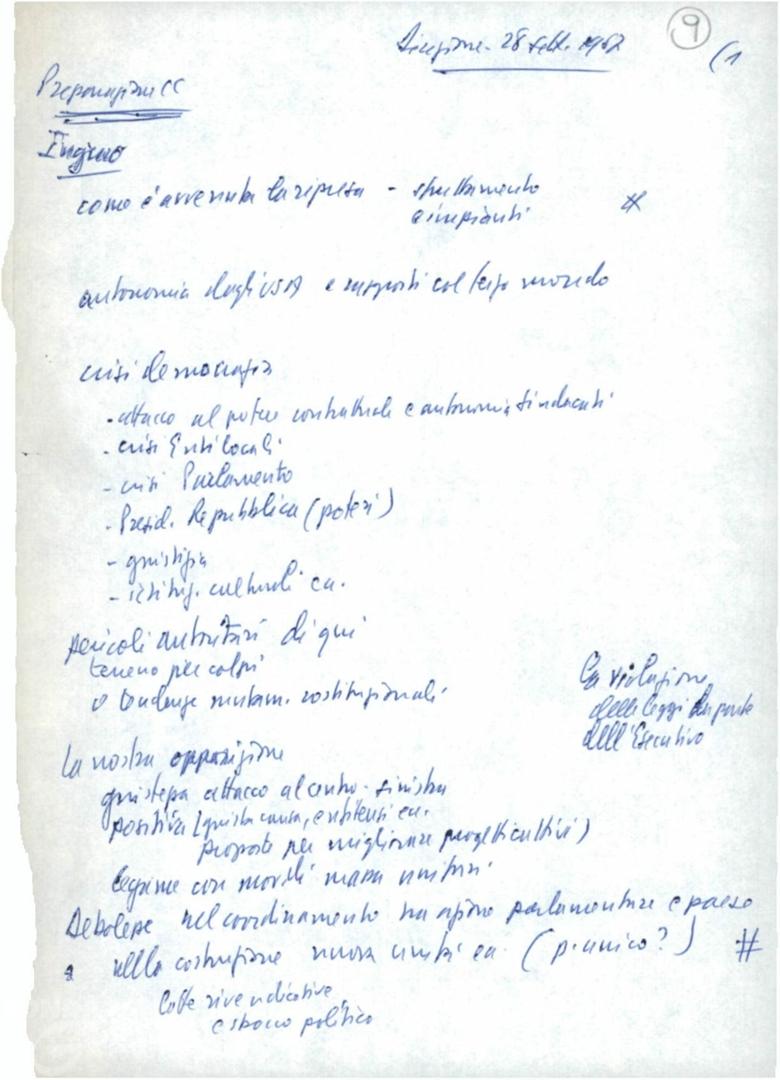 9
Direzione - 28 sett. 1967
(1
Preparazione CC
Ingrao
come è avvenuta la ripresa - sfruttamento
e impianti
#
autonomia dagli USA e rapporti col terzo mondo
crisi democrazia
- attacco al potere contrattuale e autonomia sindacati
- crisi Enti locali
- crisi Parlamento
- Presid. Repubblica (poteri)
- giustizia
- istituz. culturali ecc.
pericoli autoritari di qui
terreno per colpi
o tendenze mutam. costituzionali
la violazione
delle leggi da parte
dell'Esecutivo
La nostra opposizione
giustezza attacco al centro-sinistra
positiva (giusta causa,
proposte per migliorare progetti cattivi)
legame con movti massa unitari
Debolezze nel coordinamento tra azione parlamentare e paese
nella costruzione nuova unità ecc. (p. unico?)
#
lotte rivendicative
e sbocco politico